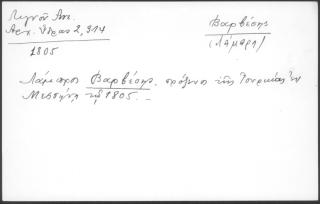 Λιγνοῦ Ἀντ.
Ἀρχ. Ὕδρας 2, 314
1805
Βαρβέσης
(Λάμπρη)
Λάμπρος Βαρβέσης, πρόξενος τῆς Τουρκίας ἐν
Μεσσήνῃ τῷ 1805.-